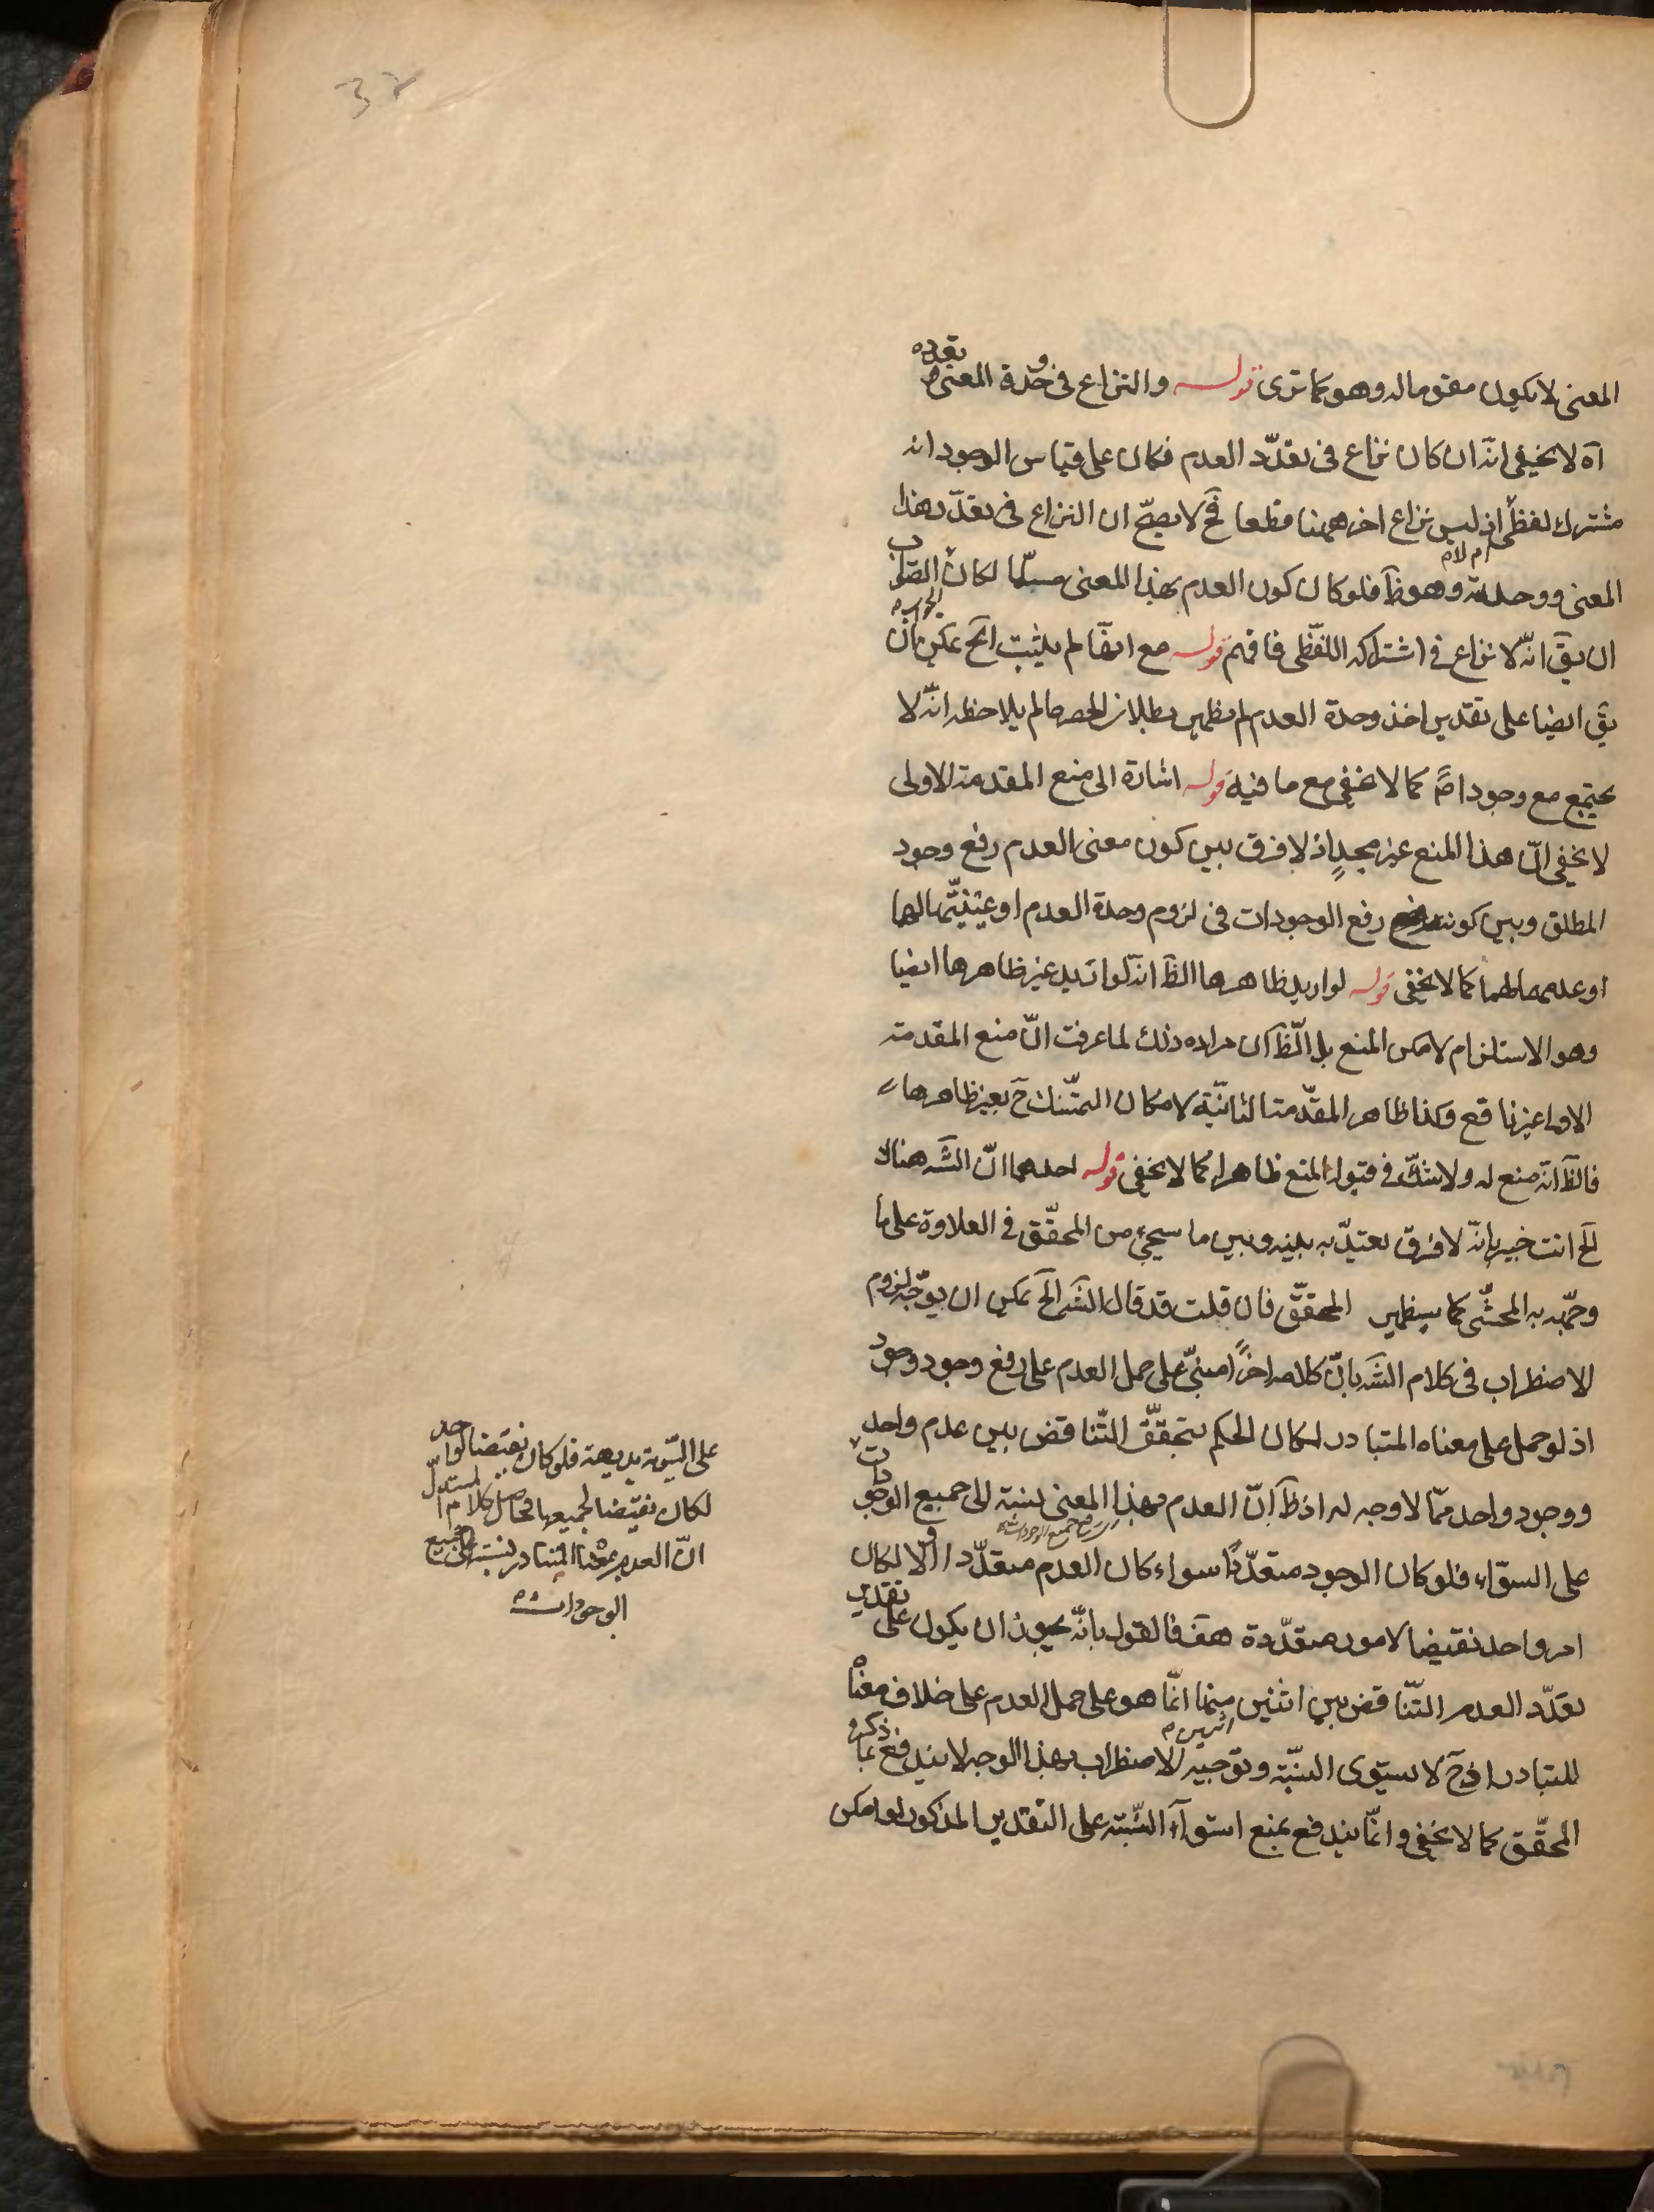 32
المعنى لا يكون مقوما له وهو كما ترى قوله والنزاع فى وحدة المعنى وتعدده
آه لا يخفى انه ان كان نزاع فى تعدّد العدم فكان على قياس الوجود انه
مشترك لفظى اذ ليس نزاع اخر ههنا قطعا فح لا يصحّ ان النزاع فى تعدّد هذا
المعنى ووحدته ام لا وهو ظ فلو كان كون العدم بهذا المعنى مسلّما لكان الصواب
ان يق انّه لا نزاع فى اشتراكه اللفظى فافهم قوله مع ايضا لم يثبت الخ يمكن الجواب بان
يق ايضا على تقدير اخذ وحدة العدم لم يظهر بطلان الحصر ما لم يلاحظ انّه لا
يجتمع مع وجود اصلا كما لا يخفى مع ما فيه قوله اشارة الى منع المقدمة الاولى
لا يخفى انّ هذا المنع غير مجدٍ اذ لا فرق بين كون معنى العدم رفع وجود
المطلق وبين كونه رفع الوجودات فى لزوم وحدة العدم او عينيّتها لها
او عدمها لهما كما لا يخفى قوله لو اريد ظاهرها الظ انه لو اريد غير ظاهرها ايضا
وهو الاستلزام لا مكن المنع بل الظ ان مراده ذلك لما عرفت انّ منع المقدمة
الاولى غير نافع وكذا ظاهر المقدّمة الثانيّة لا مكان التمسّك ح بغير ظاهرها
فالظ انه منع له ولا شكّ فى قبول المنع ظاهرا كما لا يخفى قوله احدهما انّ الشه هناك
الخ انت خبير بانّه لا فرق يعتدّ به بينه وبين ما سيجئ من المحقّق فى العلاوة على ما
وجّهه به المحشّى كما سيظهر المحقّق فان قلت قد قال الشه الخ يمكن ان يوّجه لزوم
الاضطراب فى كلام الشه بانّ كلامه اخرًا مبنىّ على حمل العدم على رفع وجود وجود
اذ لو حمل على معناه المتبادر لكان الحكم بتحقّق التّناقض بين عدم واحد
ووجود واحد ممّا لا وجه له اذ ظ انّ العدم بهذا المعنى نسبته الى جميع الوجودات
على السوّاء فلو كان الوجود متعدّدًا سواء كان العدم متعدّدا او لا لكان
امر واحد نقيضا لامور متعدّدة هف فالقول بانّه يجوز ان يكون على تقدير
تعدّد العدم التّناقض بين اثنين اثنين منهما انّما هو على حمل العدم على خلاف معناه
المتبادر اذ ح لا يستوى النسبة وتوجيه الاضطراب بهذا الوجه لا يندفع بما ذكره
المحقّق كما لا يخفى وانّما يندفع بمنع استواء النّسبة على التقدير المذكور لو امكن
على السّوية بديهة فلو كان نقيضا لواحد
لكان نقيضا لجميعها فحاصل كلام المستدلّ
انّ العدم بمعناه المتبادر نسبته الى جميع
الوجودات